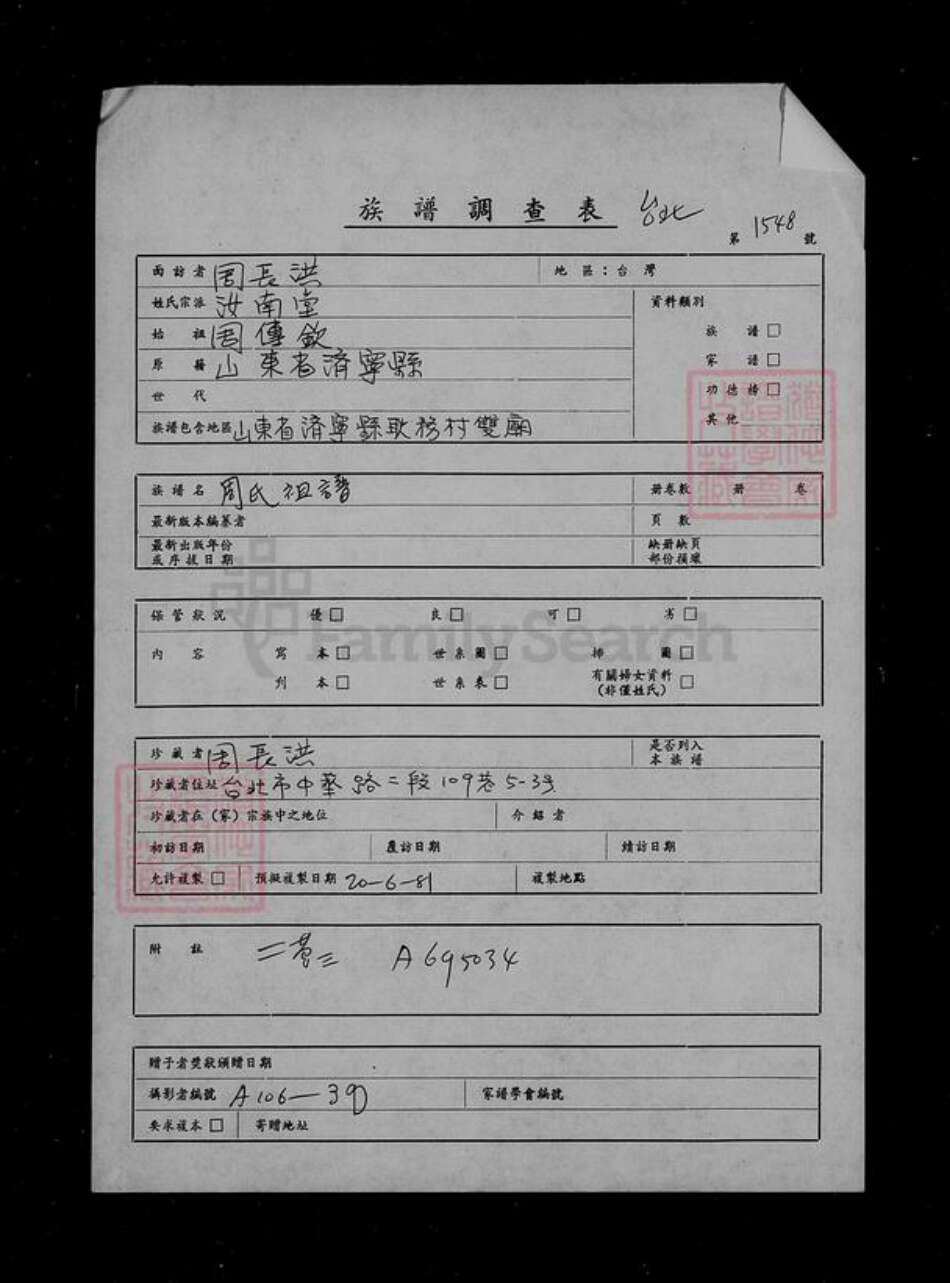 族譜調查表 台北
第 1548 號
面訪者 周長洪 地區：台灣
姓氏宗派 汝南堂 資料類別
始祖 周傳欽 族譜□
原籍 山東省濟寧縣 家譜□
世代 功德榜□
族譜包含地區 山東省濟寧縣耿村雙廟 其他
族譜名 周氏祖譜 冊卷數 冊 卷
最新版本編纂者 頁數
最新出版年份 缺冊缺頁
或序拔日期 部份損壞
保管狀況 優□ 良□ 可□ 劣□
內容 寫本□ 世系圖□ 掛圖□
刊本□ 世系表□ 有關婦女資料□
(非僅姓氏)
FamilySearch
珍藏者 周長洪 是否列入
本族譜
珍藏者住址 台北市中華路二段109巷5-3号
珍藏者在（家）宗族中之地位 介紹者
初訪日期 覆訪日期 續訪日期
允許複製□ 預擬複製日期 20-6-81 複製地點
附註 A695034
贈予者獎狀頒贈日期
攝影者編號 A106-39 家譜學會編號
要求複本□ 寄贈地址